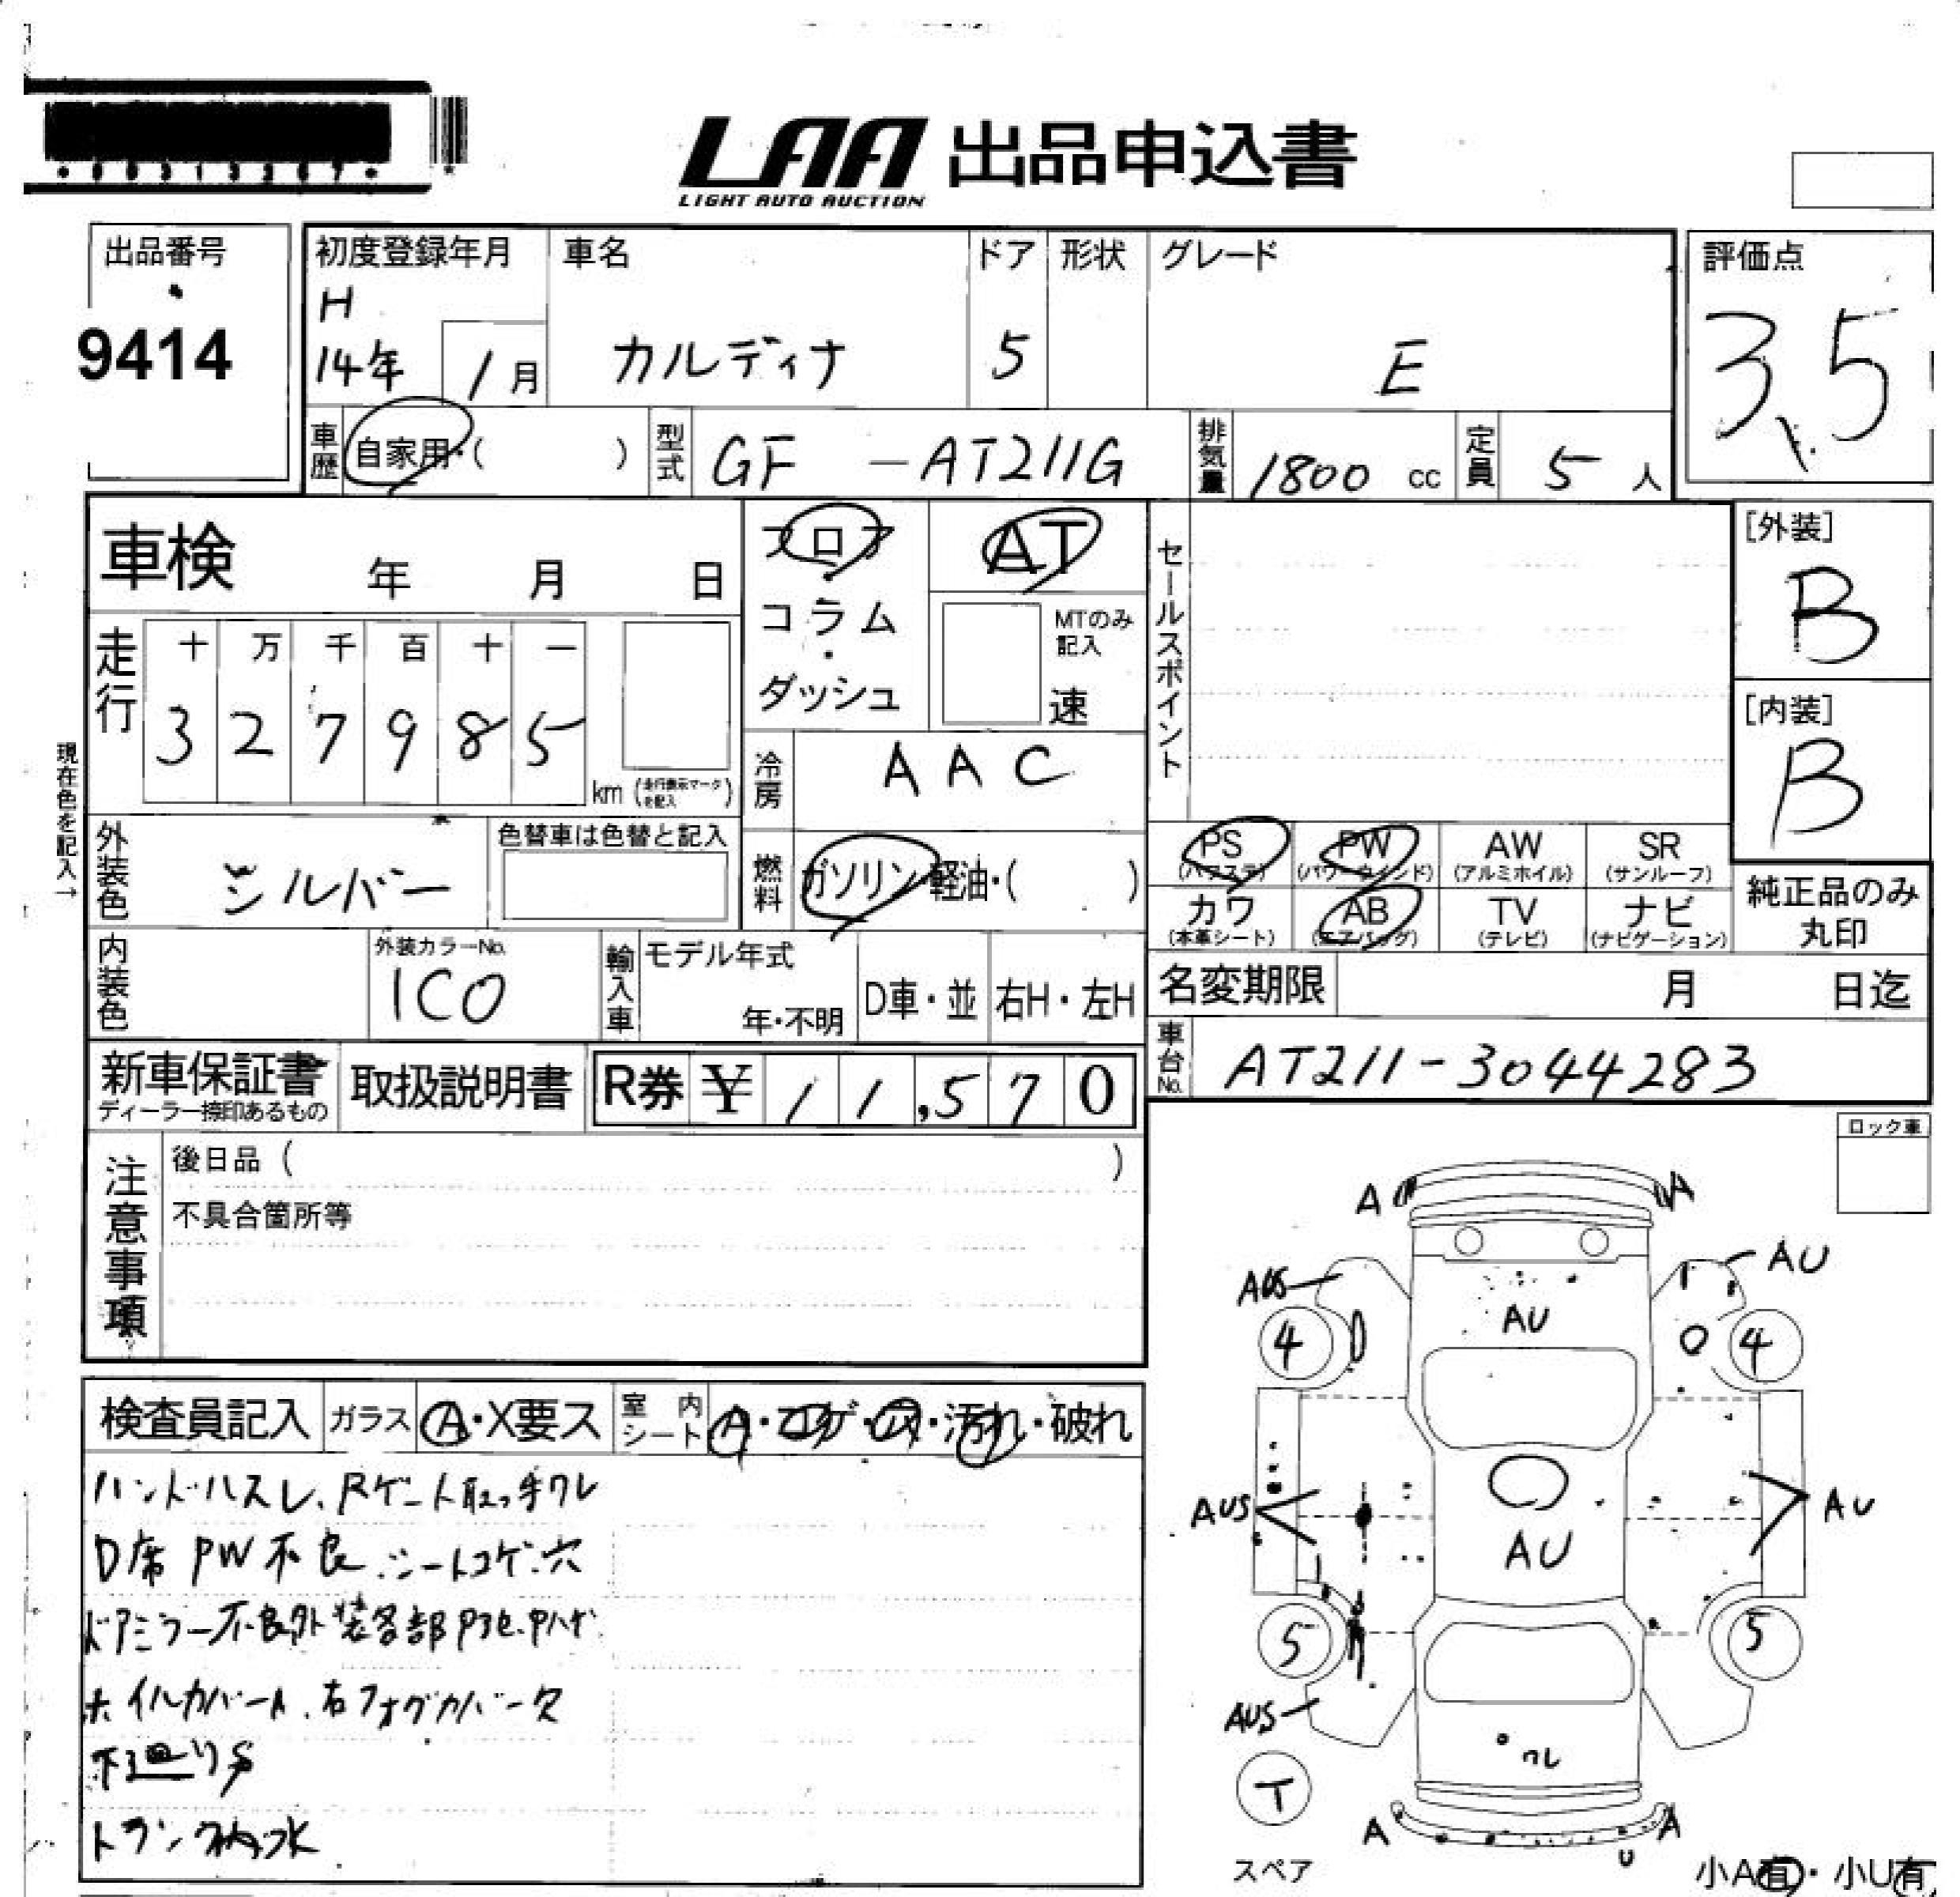 LAA 出品申込書
LIGHT AUTO AUCTION
出品番号
9414
初度登録年月
H
14年 1月
車名
カルディナ
ドア
5
形状
グレード
E
評価点
3.5
車歴 自家用・( )
型式 GF -AT211G
排気量 1800 cc
定員 5 人
車検 年 月 日
フロア・コラム・ダッシュ
AT
MTのみ記入
速
セールスポイント
[外装]
B
[内装]
B
走行
十 万 千 百 十 一
3 2 7 9 8 5
km (走行表示マークを記入)
冷房 AAC
現在色を記入→
外装色 シルバー
色替車は色替と記入
燃料 ガソリン・軽油・( )
PS (パワステ) PW (パワーウインド) AW (アルミホイル) SR (サンルーフ)
カワ (本革シート) AB (エアバッグ) TV (テレビ) ナビ (ナビゲーション)
純正品のみ丸印
内装色
外装カラーNo.
1C0
輸入車
モデル年式
年・不明
D車・並
右H・左H
名変期限 月 日迄
車台No. AT211-3044283
新車保証書
ディーラー捺印あるもの
取扱説明書
R券 ¥ 11,570
注意事項
後日品 ( )
不具合箇所等
ロック車
検査員記入
ガラス A・X要ス
室内シート A・コゲ・ス・汚れ・破れ
ハンドルスレ、Rゲート取っ手ワレ
D席 PW不良 シートコゲ穴
ドアミラー不良外装各部P
右フォグカバー欠
下廻りS
トランク内水
A A
AUS AU
4 AU 4
AUS AU AU
5 5
AUS
ワレ
T
A A
U
スペア
小A有・小U有